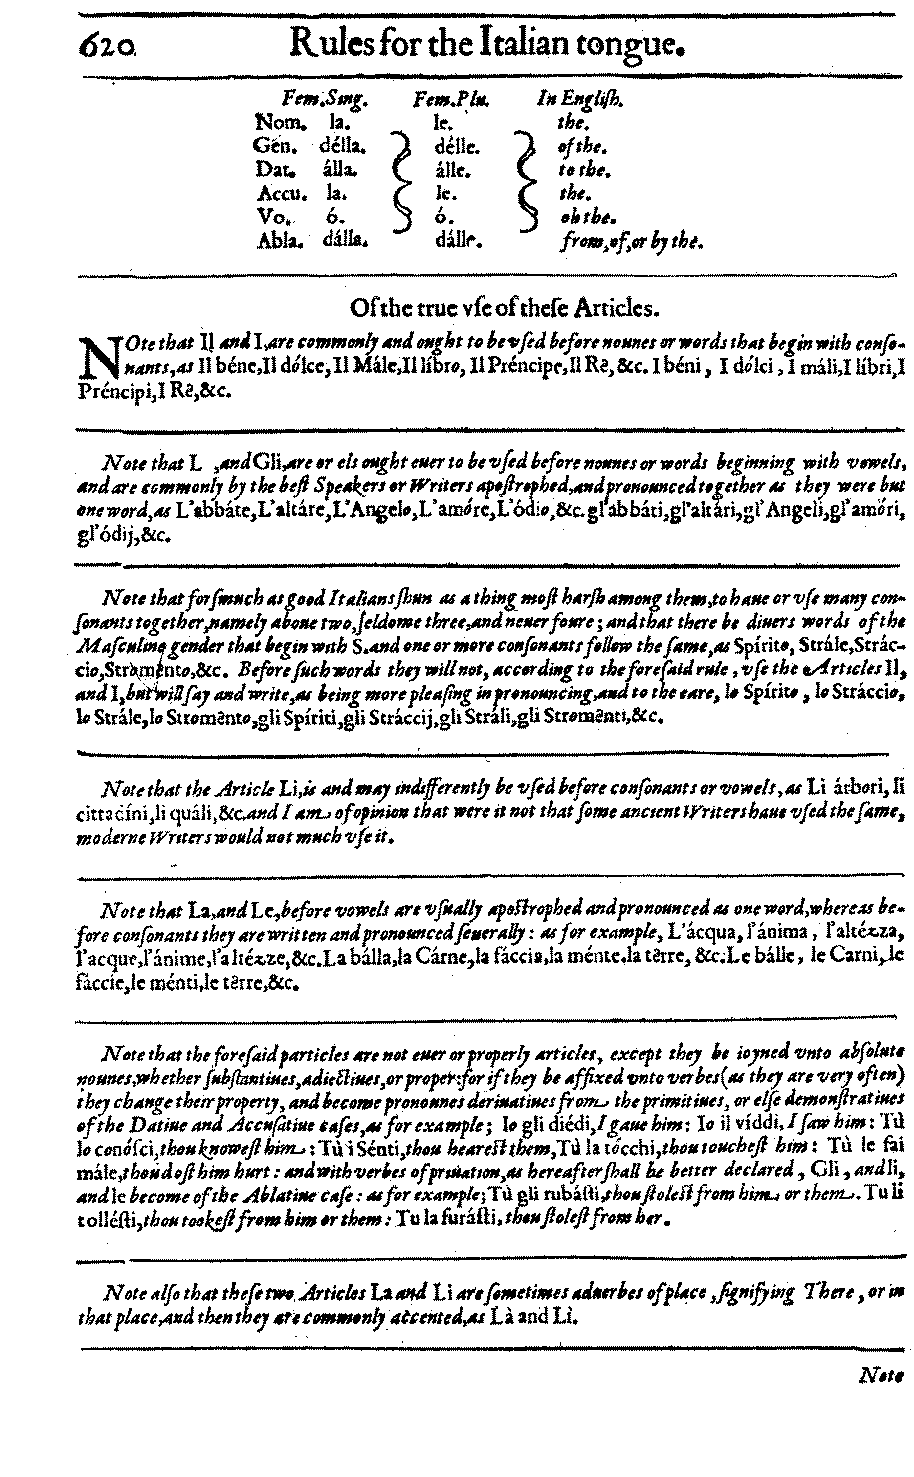 620 Rules for the Italian tongue.
Fem.Sing. Fem.Plu. In Engliſh.
Nom. la. le. the.
Gen. délla. délle. of the.
Dat. álla. álle. to the.
Accu. la. le. the.
Vo. ó. ó. oh the.
Abla. dálla. dálle. from,of,or by the.
Of the true vſe of theſe Articles.
NOte that Il and I,are commonly and ought to be vſed before nounes or words that begin with conſo-
nants,as Il béne,Il dólce,Il Mále,Il líbro, Il Préncipe,Il Rê, &c. I béni, I dólci, I máli,I líbri,I
Préncipi,I Rê,&c.
Note that L ,and Gli,are or els ought euer to be vſed before nounes or words beginning with vowels,
and are commonly by the beſt Speakers or Writers apoſtrophed,and pronounced together as they were but
one word,as L'abbáte,L'altáre,L'Angelo,L'amóre,L'ódio,&c.gl'abbáti,gl'altári,gl'Angeli,gl'amóri,
gl'ódij,&c.
Note that forſmuch as good Italians ſhun as a thing moſt harſh among them,to haue or vſe many con-
ſonants together,namely aboue two,ſeldome three,and neuer foure; and that there be diuers words of the
Maſculine gender that begin with S.and one or more conſonants follow the ſame,as Spírito, Strále,Strác-
cio,Stromênto,&c. Before ſuch words they will not, according to the foreſaid rule, vſe the Articles Il,
and I,but will ſay and write,as being more pleaſing in pronouncing,and to the eare, lo Spírito, lo Stráccio,
lo Strále,lo Stromênto,gli Spíriti,gli Stráccij,gli Stráli,gli Stromênti,&c.
Note that the Article Li,is and may indifferently be vſed before conſonants or vowels,as Li árbori,li
cittadíni,li quáli,&c.and I am of opinion that were it not that ſome ancient Writers haue vſed the ſame,
moderne Writers would not much vſe it.
Note that La,and Le,before vowels are vſually apoſtrophed and pronounced as one word,whereas be-
fore conſonants they are written and pronounced ſeuerally: as for example, L'ácqua, l'ánima, l'altézza,
l'acque,l'ánime,l'altézze,&c.La bálla,la Cárne,la fáccia,la ménte.la têrre, &c.Le bálle, le Carni,le
fáccie,le ménti,le têrre,&c.
Note that the foreſaid particles are not euer or properly articles, except they be ioyned vnto abſolute
nounes,whether ſubſtantiues,adiectiues,or proper:for if they be affixed vnto verbes(as they are very often)
they change their property, and become pronounes deriuatiues from the primitiues, or elſe demonſtratiues
of the Datiue and Accuſatiue caſes,as for example; Io gli diédi,I gaue him: Io il víddi,I ſaw him: Tù
lo conóſci,thou knoweſt him: Tù i Sénti,thou heareſt them,Tù la tócchi,thou toucheſt him: Tù le fai
mále,thou doſt him hurt: and with verbes of priuation,as hereafter ſhall be better declared, Gli, and li,
and le become of the Ablatiue caſe: as for example;Tù gli rubáſti,thou ſtoleſt from him or them. Tu li
tolléſti,thou tookeſt from him or them: Tu la furáſti,thou ſtoleſt from her.
Note alſo that theſe two Articles La and Li are ſometimes aduerbes of place, ſignifying There, or in
that place,and then they are commonly accented,as Là and Lì.
Note